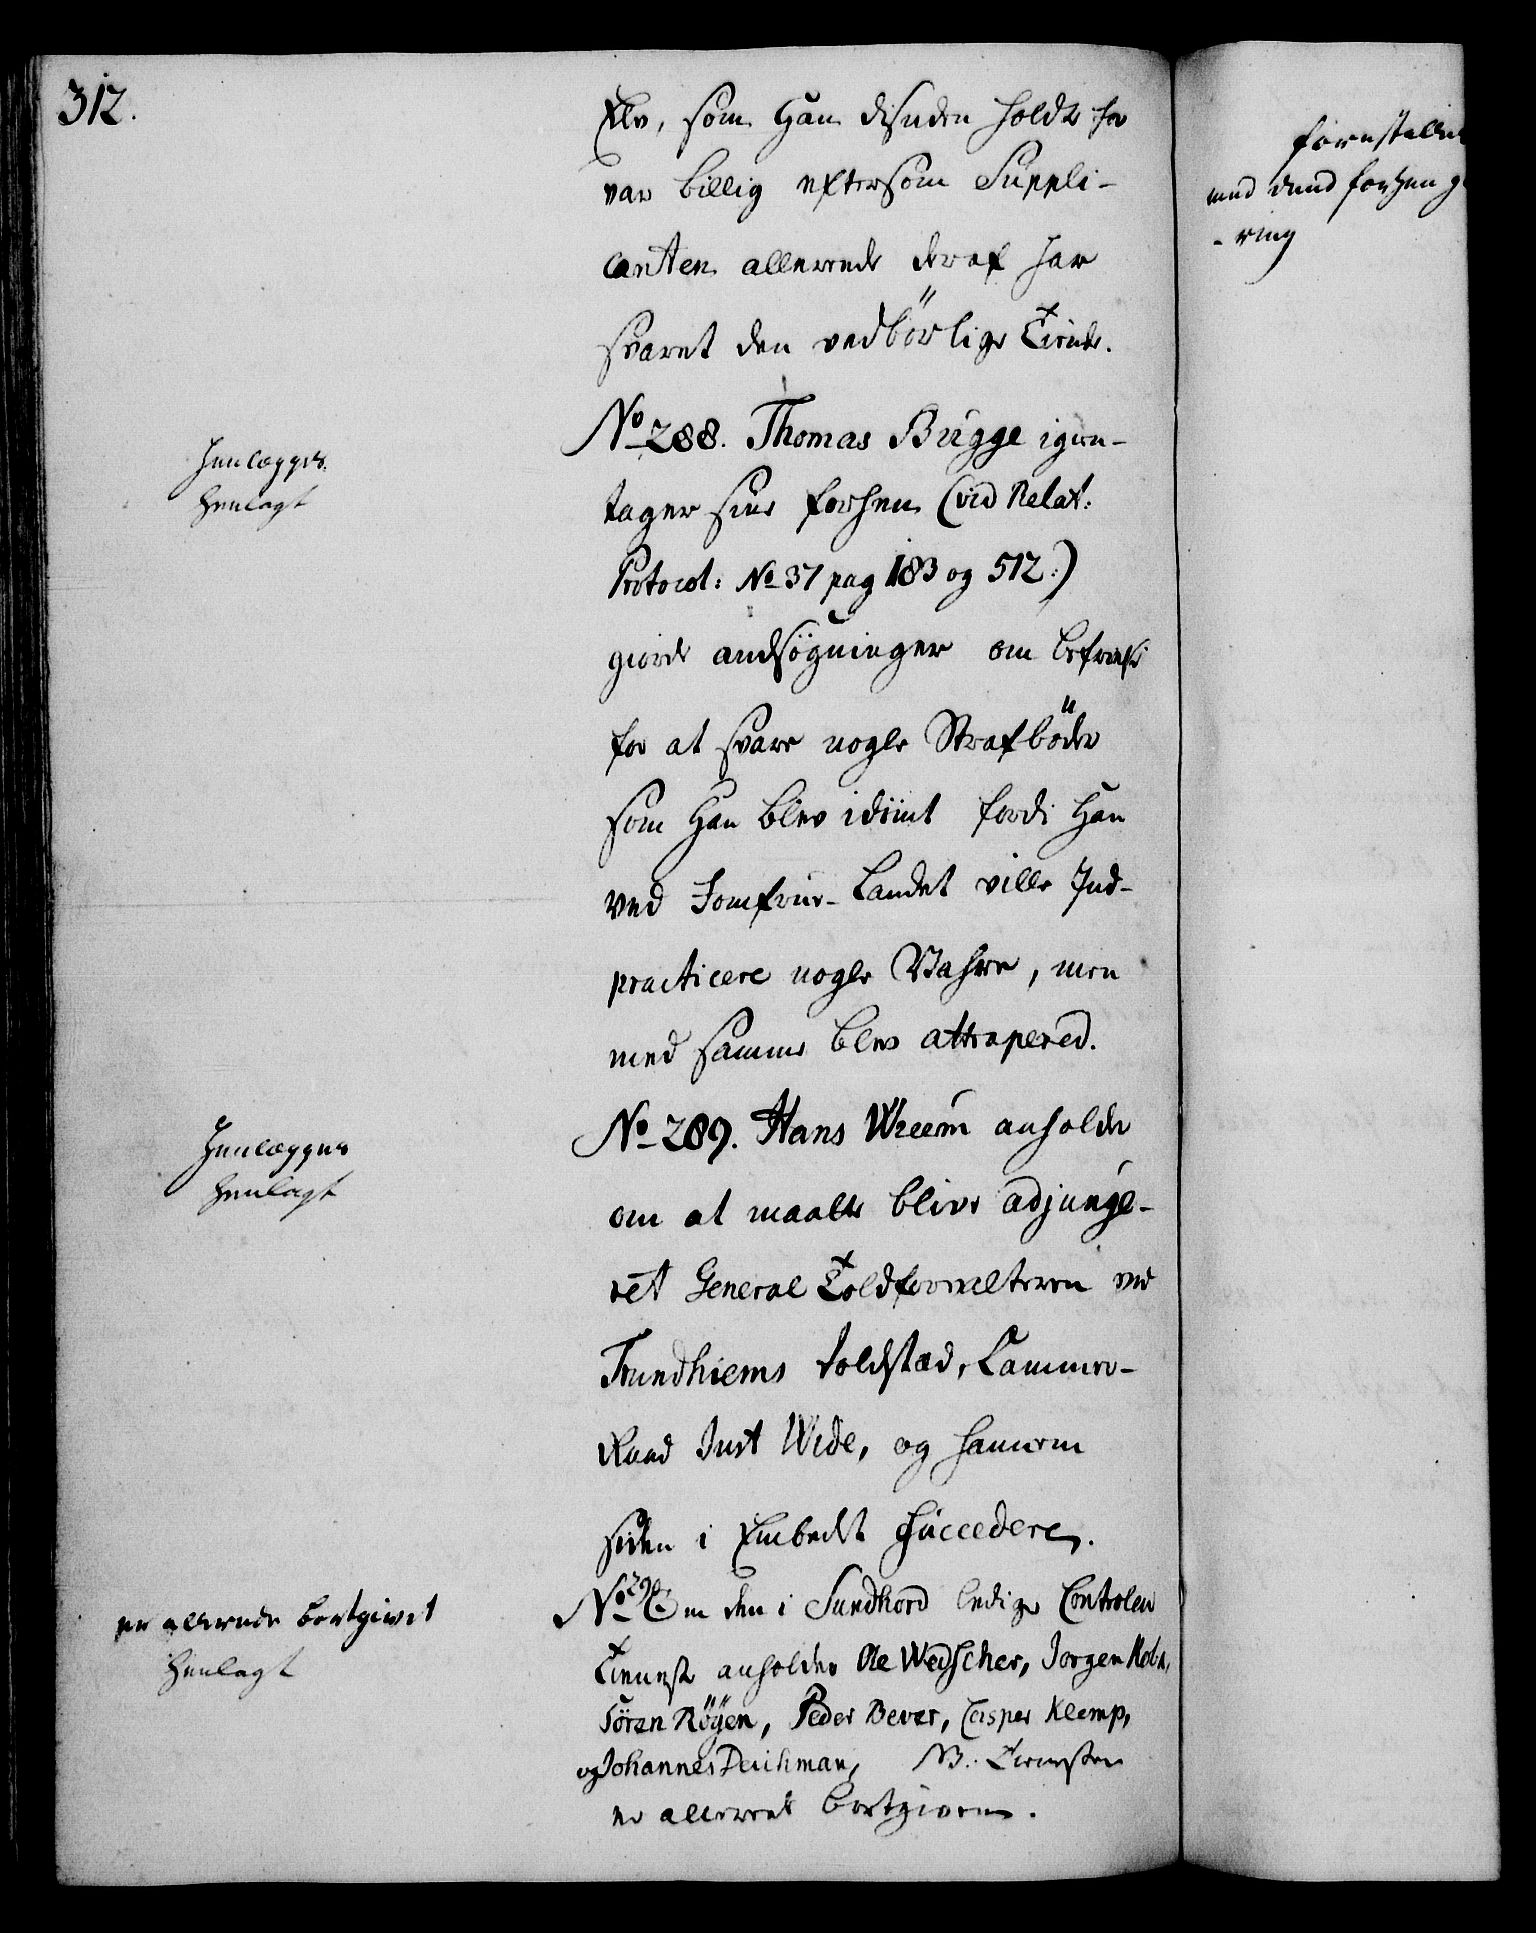 312.
Elv, som Han disuden holdt for
var billig eftersom Suppli-
canten allerede deraf har
svaret den vedbörlige Tiende.
Henlægges.
Henlagt
No 288. Thomas Bugge igien-
tager sine forhen (vid Relat:
Protocol: No 37 pag 183 og 512:)
giorde andsögninger om befrielse
for at svare nogle Strafböder
som Han blev idömt fordi Han
ved Jomfrue-Landet ville Ind-
practicere nogle Vahre, men
med samme blev attrapered.
Henlægges
Henlagt
No 289. Hans Wreem anholder
om at maatte blive adjunge-
ret General Toldforvalteren ved
Trundhiems Toldstæd, Cammer-
Raad Just Wide, og hannem
siden i Embedet succedere.
er allerede bortgivet
Henlagt
No 290. Om den i Sundhord ledige Controleur
Tieneste anholder Ole Wedscher, Jorgen
Sören Röyen, Peder Bever, Casper Klemp,
og Johannes Deichman, NB. Tienesten
er allereede bortgiven.
fornstillin
med dend forhen g
-ring